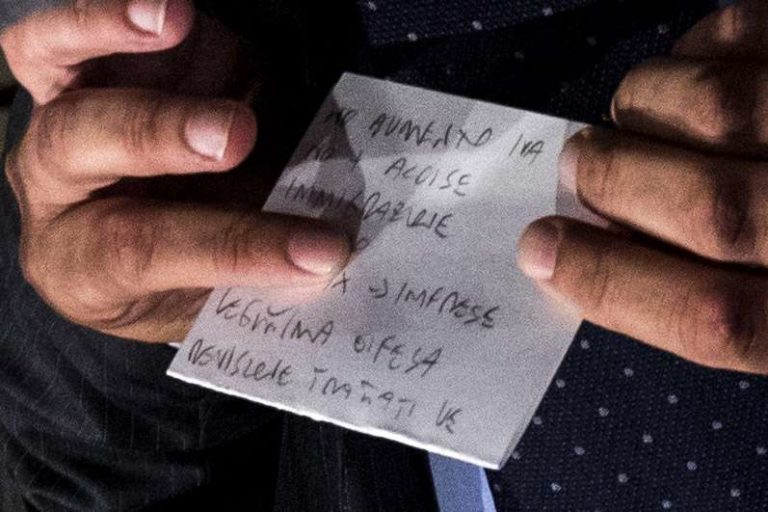 NO AUMENTO IVA
NO ACCISE
IMMIGRAZIONE
TAX → IMPRESE
LEGITTIMA DIFESA
REVISIONE TRATTATI UE